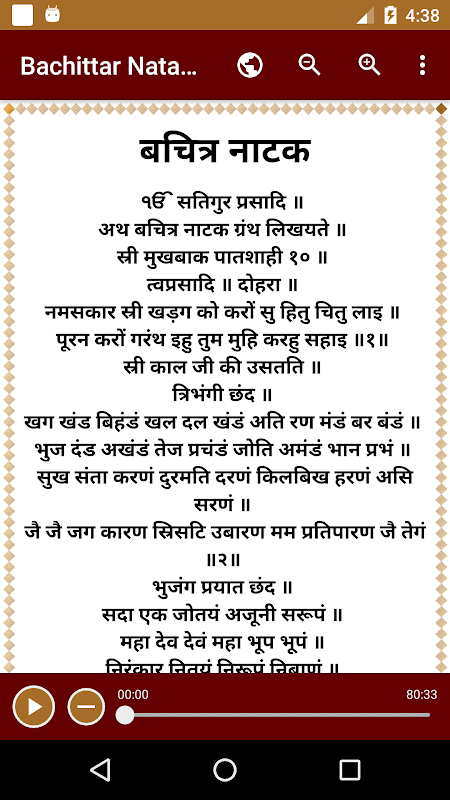 4:38
Bachittar Nata...
बचित्र नाटक
ੴ सतिगुर प्रसादि ॥
अथ बचित्र नाटक ग्रंथ लिखयते ॥
स्री मुखबाक पातशाही १० ॥
त्वप्रसादि ॥ दोहरा ॥
नमसकार स्री खड़ग को करों सु हितु चितु लाइ ॥
पूरन करों गरंथ इहु तुम मुहि करहु सहाइ ॥१॥
स्री काल जी की उसतति ॥
त्रिभंगी छंद ॥
खग खंड बिहंडं खल दल खंडं अति रण मंडं बर बंडं ॥
भुज दंड अखंडं तेज प्रचंडं जोति अमंडं भान प्रभं ॥
सुख संता करणं दुरमति दरणं किलबिख हरणं असि
सरणं ॥
जै जै जग कारण स्रिसटि उबारण मम प्रतिपारण जै तेगं
॥२॥
भुजंग प्रयात छंद ॥
सदा एक जोतयं अजूनी सरूपं ॥
महा देव देवं महा भूप भूपं ॥
निरंकार नितयं निरूपं निबाणं ॥
00:00
80:33